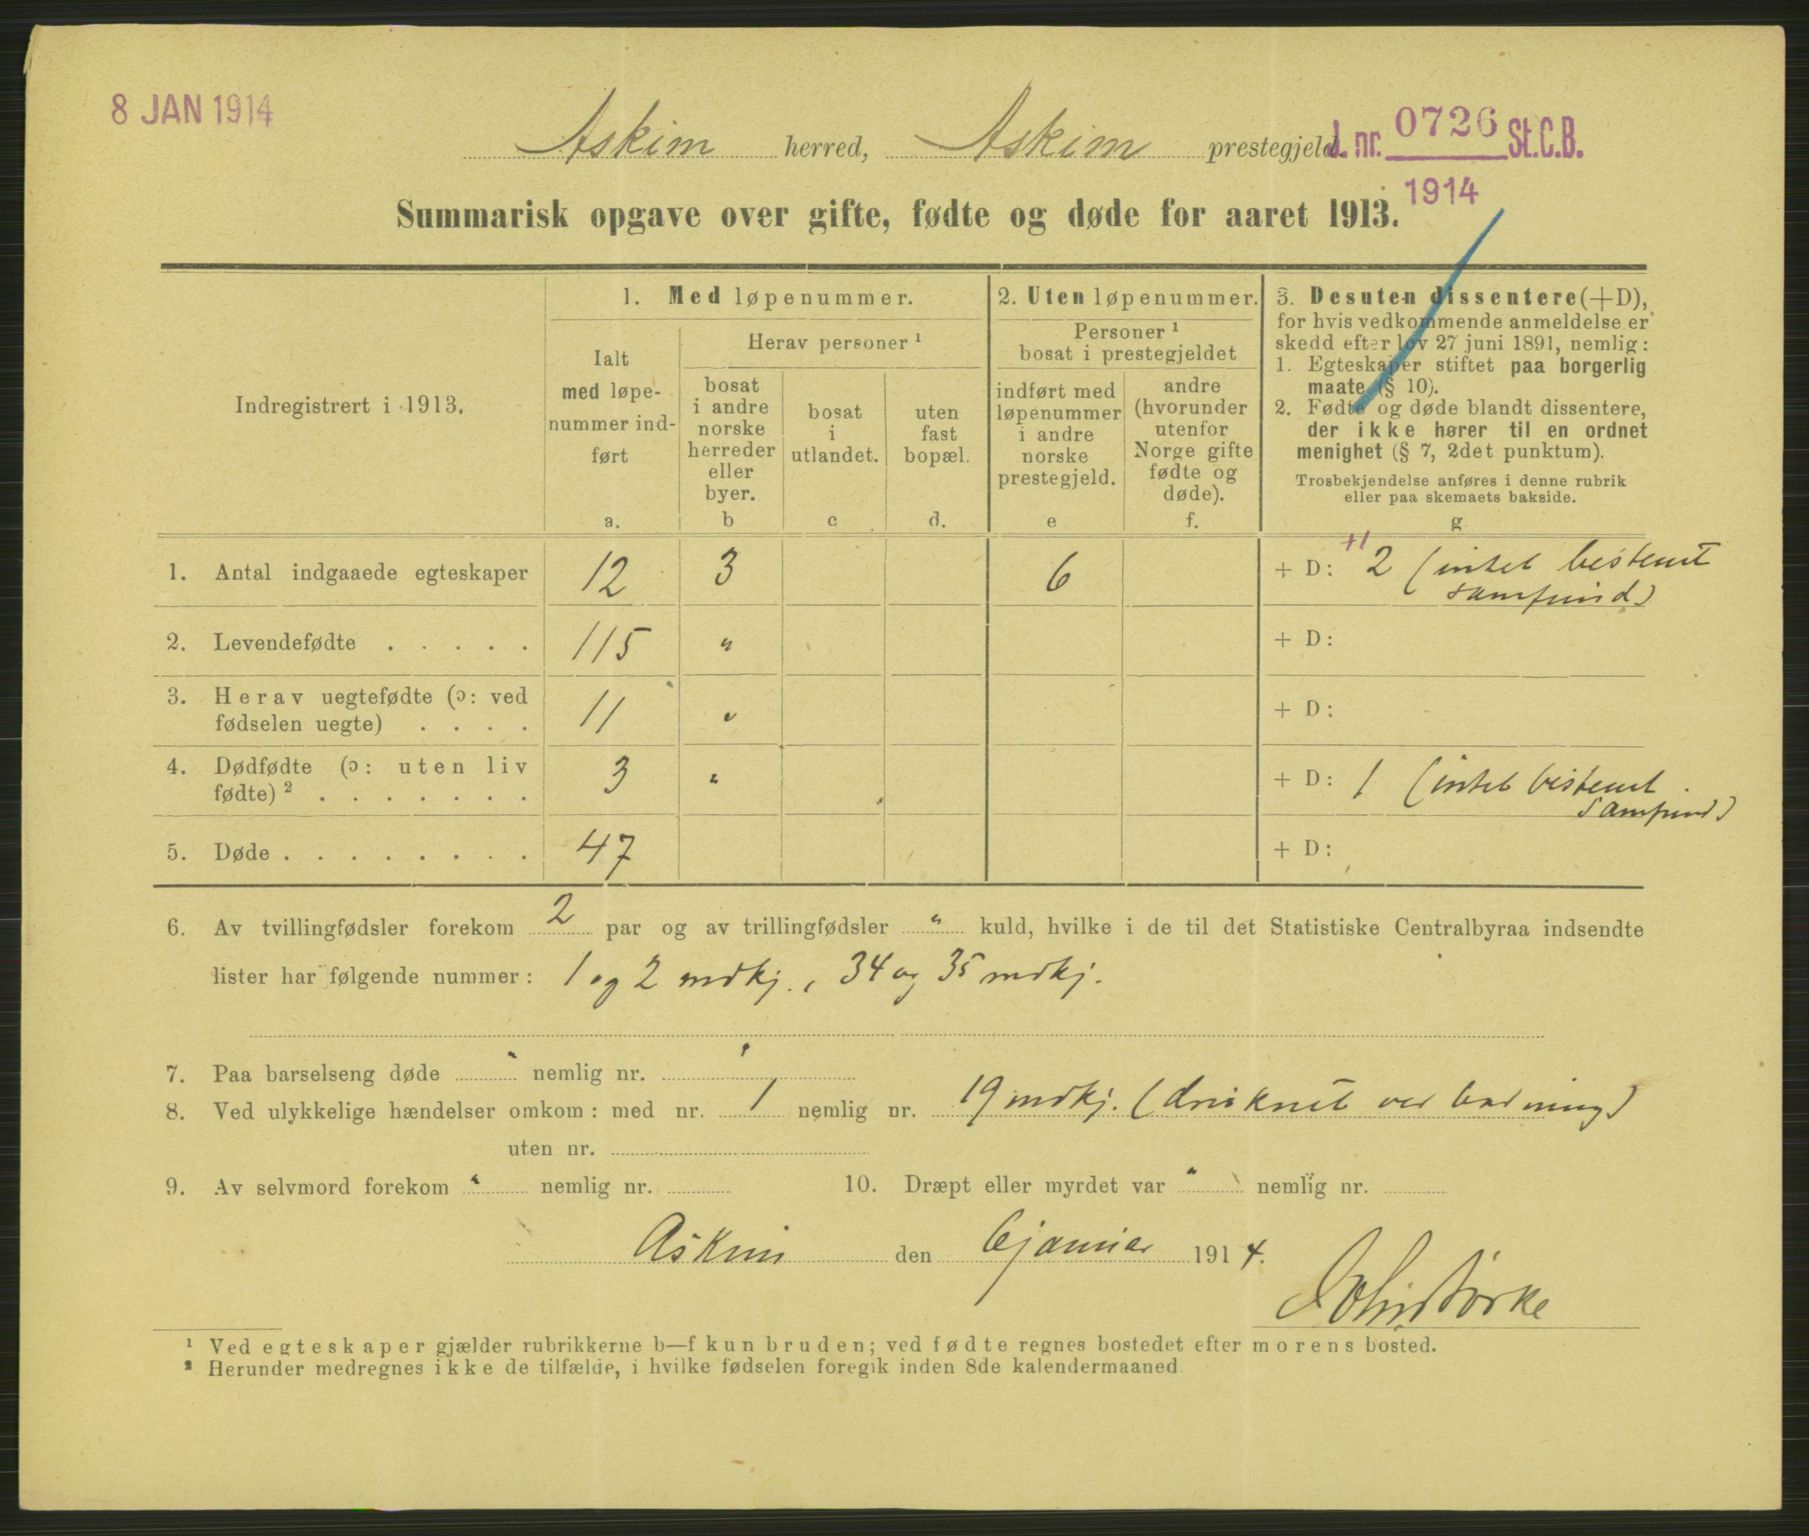 8 JAN 1914
Askim herred, Askim prestegjeld.
J. nr. 0726 St.C.B.
1914
Summarisk opgave over gifte, fødte og døde for aaret 1913.
Indregistrert i 1913.
1. Med løpenummer.
Ialt
med løpe-
nummer ind-
ført
a.
Herav personer ¹
bosat
i andre
norske
herreder
eller
byer.
b
bosat
i
utlandet.
c
uten
fast
bopæl.
d.
2. Uten løpenummer.
Personer ¹
bosat i prestegjeldet
indført med
løpenummer
i andre
norske
prestegjeld.
e
andre
(hvorunder
utenfor
Norge gifte
fødte og
døde).
f.
3. Desuten dissentere (+D),
for hvis vedkommende anmeldelse er
skedd efter lov 27 juni 1891, nemlig:
1. Egteskaper stiftet paa borgerlig
maate (§ 10).
2. Fødte og døde blandt dissentere,
der ikke hører til en ordnet
menighet (§ 7, 2det punktum).
Trosbekjendelse anføres i denne rubrik
eller paa skemaets bakside.
g
1. Antal indgaaede egteskaper 12 3 6 + D: +1 2 (intet bestemt
samfund)
2. Levendefødte . . . . . 115 " + D:
3. Herav uegtefødte (ɔ: ved
fødselen uegte) . . . . 11 " + D:
4. Dødfødte (ɔ: uten liv
fødte) ² . . . . . . . 3 " + D: 1 (intet bestemt
samfund)
5. Døde . . . . . . . . 47 + D:
6. Av tvillingfødsler forekom 2 par og av trillingfødsler " kuld, hvilke i de til det Statistiske Centralbyraa indsendte
lister har følgende nummer: 1 og 2 mdkj., 34 og 35 mdkj.
7. Paa barselseng døde " nemlig nr. "
8. Ved ulykkelige hændelser omkom: med nr. 1 nemlig nr. 19 mdkj. (druknet ved badning)
uten nr.
9. Av selvmord forekom " nemlig nr. 10. Dræpt eller myrdet var " nemlig nr.
Askim den 6 januar 1914.
¹ Ved egteskaper gjælder rubrikkerne b—f kun bruden; ved fødte regnes bostedet efter morens bosted.
² Herunder medregnes ikke de tilfælde, i hvilke fødselen foregik inden 8de kalendermaaned